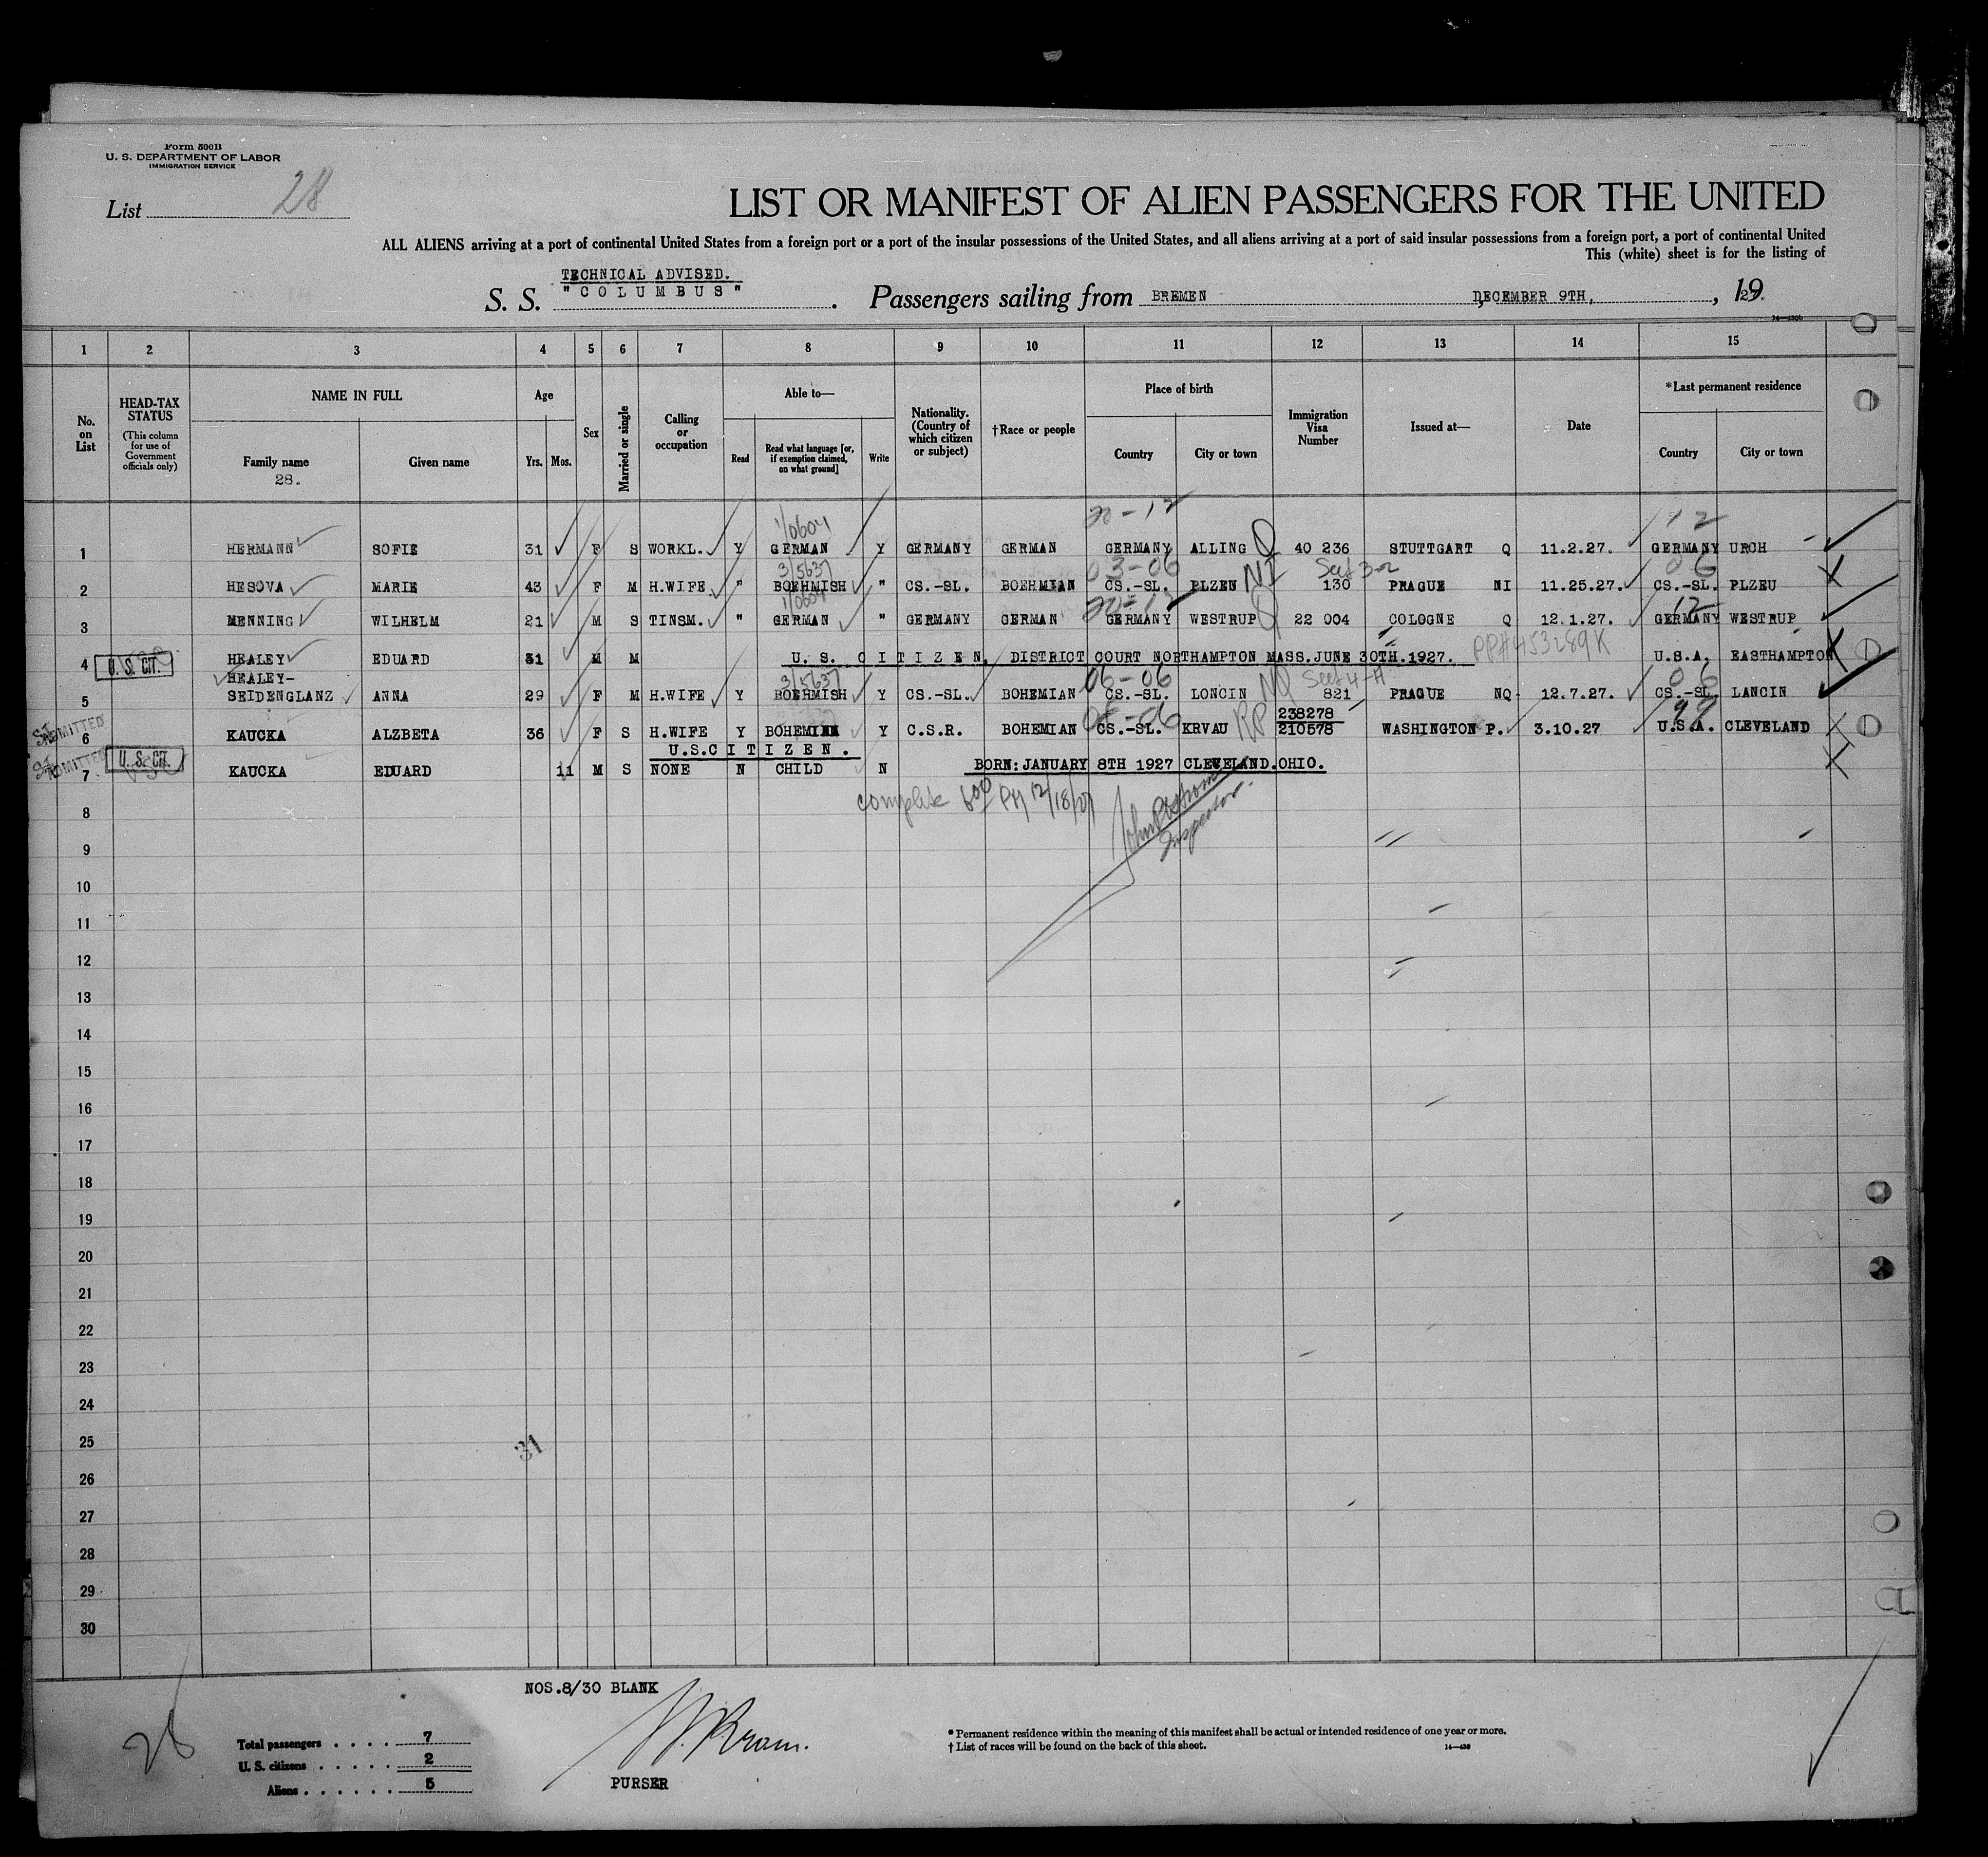 Form 500B
U. S. DEPARTMENT OF LABOR
IMMIGRATION SERVICE
List 28
LIST OR MANIFEST OF ALIEN PASSENGERS FOR THE UNITED
ALL ALIENS arriving at a port of continental United States from a foreign port or a port of the insular possessions of the United States, and all aliens arriving at a port of said insular possessions from a foreign port, a port of continental United
This (white) sheet is for the listing of
TECHNICAL ADVISED.
S. S. "COLUMBUS". Passengers sailing from BREMEN, DECEMBER 9TH, 1927.
1 2 3 4 5 6 7 8 9 10 11 12 13 14 15
No. on List
HEAD-TAX STATUS
(This column for use of Government officials only)
NAME IN FULL
Family name
28.
Given name
Age
Yrs. Mos.
Sex
Married or single
Calling or occupation
Able to—
Read
Read what language [or, if exemption claimed, on what ground]
Write
Nationality. (Country of which citizen or subject)
†Race or people
Place of birth
Country
City or town
Immigration Visa Number
Issued at—
Date
*Last permanent residence
Country
City or town
1/0604 20-12 12
1 HERMANN SOFIE 31 F S WORKL. Y GERMAN Y GERMANY GERMAN GERMANY ALLING Q 40 236 STUTTGART Q 11.2.27. GERMANY URCH
3/5637 03-06 06
2 HESOVA MARIE 43 F M H.WIFE. " BOEHMISH " CS.-SL. BOEHMIAN CS.-SL. PLZEN NI 130 PRAGUE NI 11.25.27. CS.-SL. PLZEU
1/0604 20-12 12
3 MENNING WILHELM 21 M S TINSM. " GERMAN " GERMANY GERMAN GERMANY WESTRUP Q 22 004 COLOGNE Q 12.1.27. GERMANY WESTRUP
4 U. S. CIT. HEALEY EDUARD 31 M M U. S. CITIZEN, DISTRICT COURT NORTHAMPTON MASS. JUNE 30TH.1927. PP#453289K U.S.A. EASTHAMPTON
HEALEY- 3/5637 06-06 Sec 4-A 06
5 SEIDENGLANZ ANNA 29 F M H.WIFE Y BOEHMISH Y CS.-SL. BOHEMIAN CS.-SL. LONCIN NQ 821 PRAGUE NQ 12.7.27. CS.-SL. LANCIN
ADMITTED 06-06 238278 99
6 KAUCKA ALZBETA 36 F S H.WIFE Y BOHEMIAN Y C.S.R. BOHEMIAN CS.-SL. KRVAU RP 210578 WASHINGTON P. 3.10.27 U.S.A. CLEVELAND
ADMITTED U. S. CIT. U.S.CITIZEN.
7 KAUCKA EDUARD 11 M S NONE N CHILD N BORN: JANUARY 8TH 1927 CLEVELAND.OHIO.
8 complete
Inspector.
9
10
11
12
13
14
15
16
17
18
19
20
21
22
23
24
25 31
26
27
28
29
30
NOS.8/30 BLANK
28
Total passengers . . . . 7
U. S. citizens . . . . . 2
Aliens . . . . . . 5
PURSER
* Permanent residence within the meaning of this manifest shall be actual or intended residence of one year or more.
† List of races will be found on the back of this sheet.